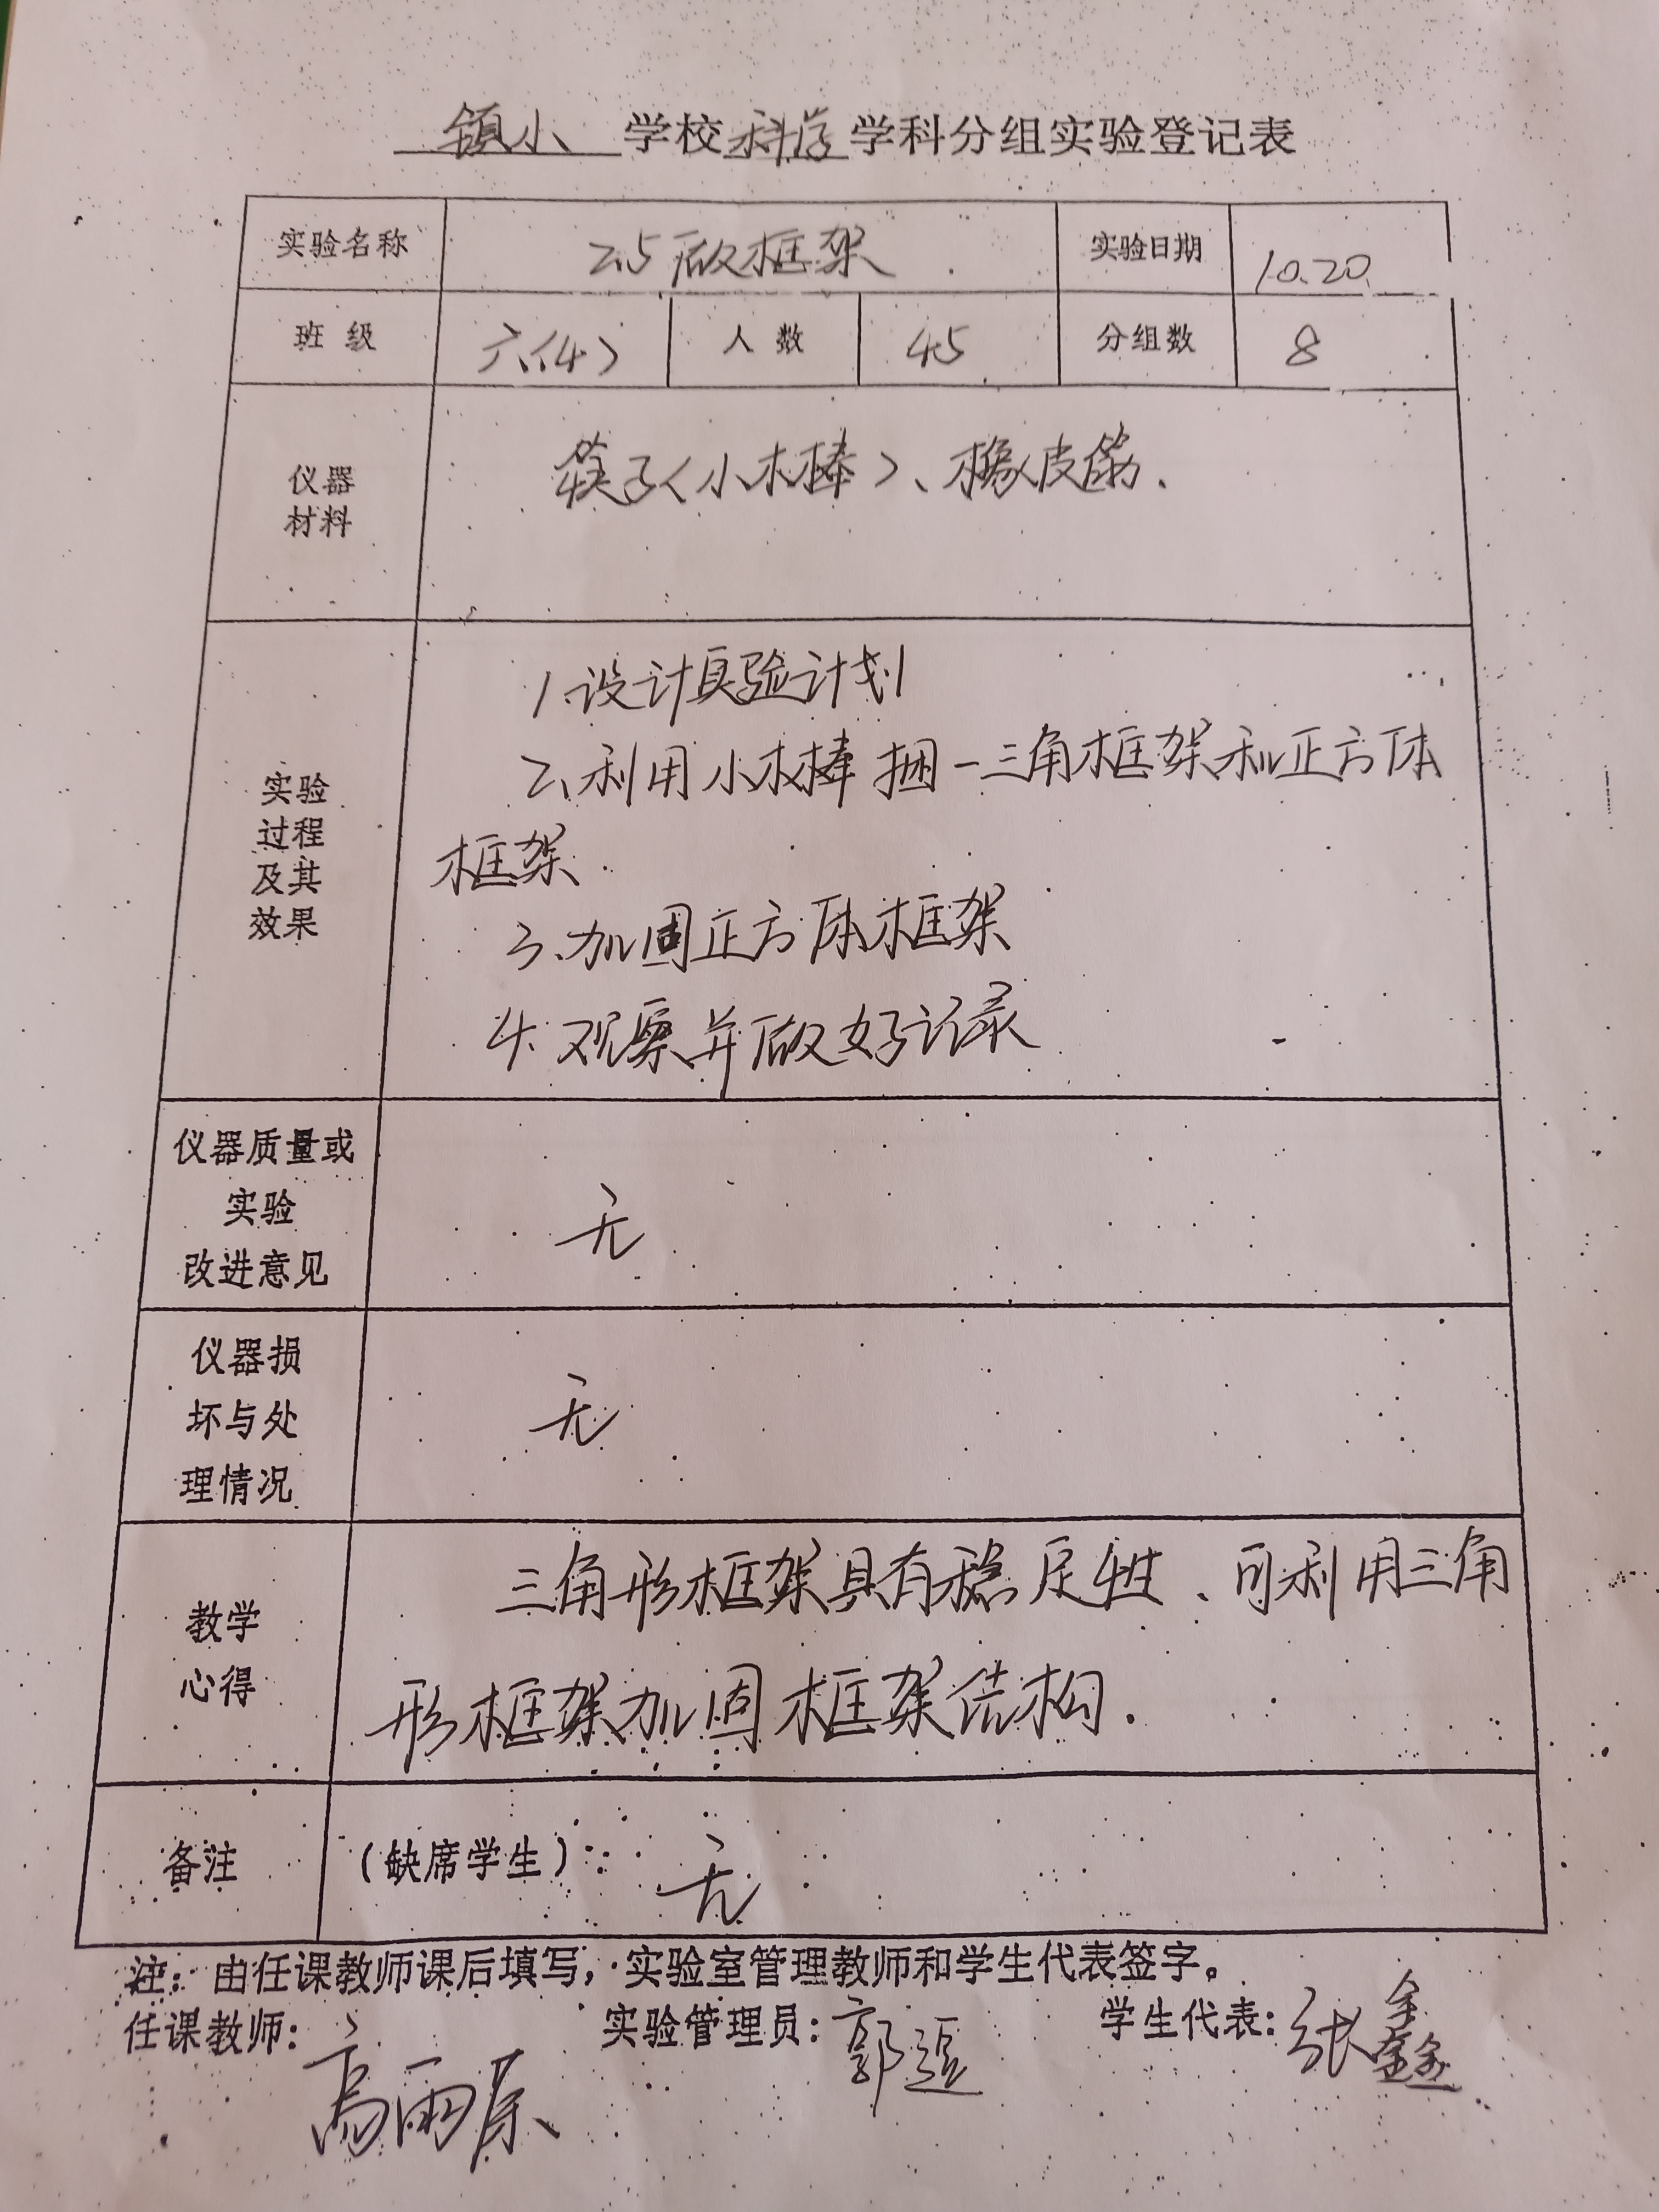 镇小 学校科学学科分组实验登记表
实验名称 2.5做框架 实验日期 10.20
班 级 六(4) 人 数 45 分组数 8
仪器
材料
筷子(小木棒)、橡皮筋.
实验
过程
及其
效果
1.设计实验计划
2、利用小木棒捆一三角框架和正方体
框架
3、加固正方体框架
4.观察并做好记录
仪器质量或
实验
改进意见
无
仪器损
坏与处
理情况
无
教学
心得
三角形框架具有稳定性、可利用三角
形框架加固框架结构.
备注 (缺席学生): 无
注: 由任课教师课后填写, 实验室管理教师和学生代表签字。
任课教师: 高雨 实验管理员: 郭 学生代表: 张鑫